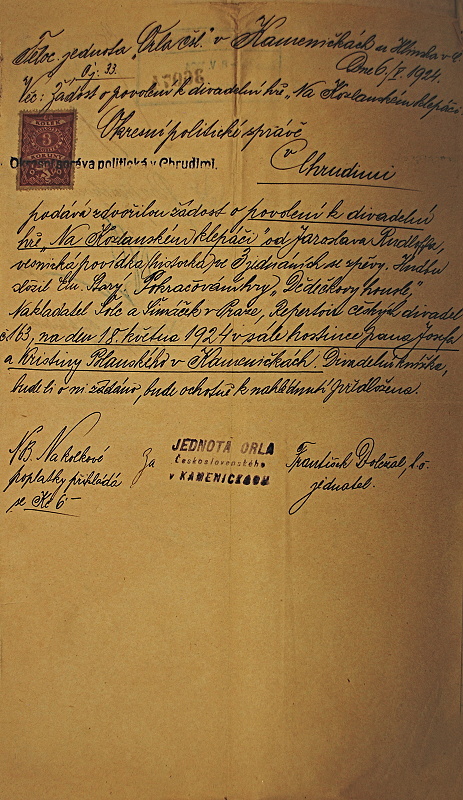 Těloc. jednota "Orla čsl." v Kameničkách u Hlinska v Č.
Č.j. 33.
Dne 6./V. 1924.
Věc: Žádost o povolení k divadelní hře "Na Kozlanském klepáči"
Okresní politické správě
v
Chrudimi
Okresní správa politická v Chrudimi.
podává zdvořilou žádost o povolení k divadelní
hře "Na Kozlanském klepáči" od Jaroslava Rudloffa,
vesnická povídka (historka) ve 3 jednáních se zpěvy. Hudbu
složil Em. Starý. Pokračování hry "Dědečkovy housle",
Nakladatel Šolc a Šimáček v Praze, Repertoir českých divadel
č. 163, na den 18. května 1924 v sále hostince pana Josefa
a Kristiny Blanského v Kameničkách. Divadelní knížka,
bude-li o ni žádáno, bude ochotně k nahlédnutí předložena.
NB. Na kolkové
poplatky přikládá
se Kč 6-
Za
JEDNOTA ORLA
Československého
v KAMENIČKÁCH
František Doležal, t.č.
jednatel.